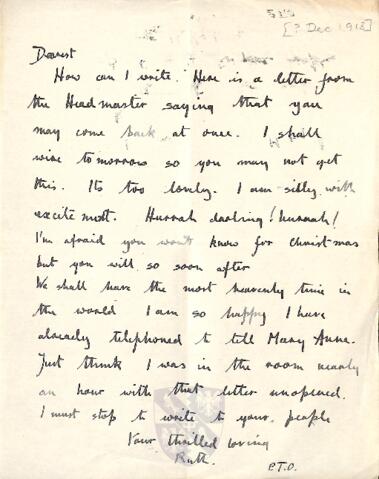 [? Dec 1918]
Dearest
How can I write. Here is a letter from
the Headmaster saying that you
may come back at once. I shall
wire tomorrow so you may not get
this. Its too lovely. I am silly with
excitement. Hurrah darling! hurrah!
I'm afraid you won't know for Christmas
but you will so soon after
We shall have the most heavenly time in
the world I am so happy I have
already telephoned to tell Mary Anne.
Just think I was in the room nearly
an hour with that letter unopened.
I must stop to write to your people
Your thrilled loving
Ruth.
P.T.O.